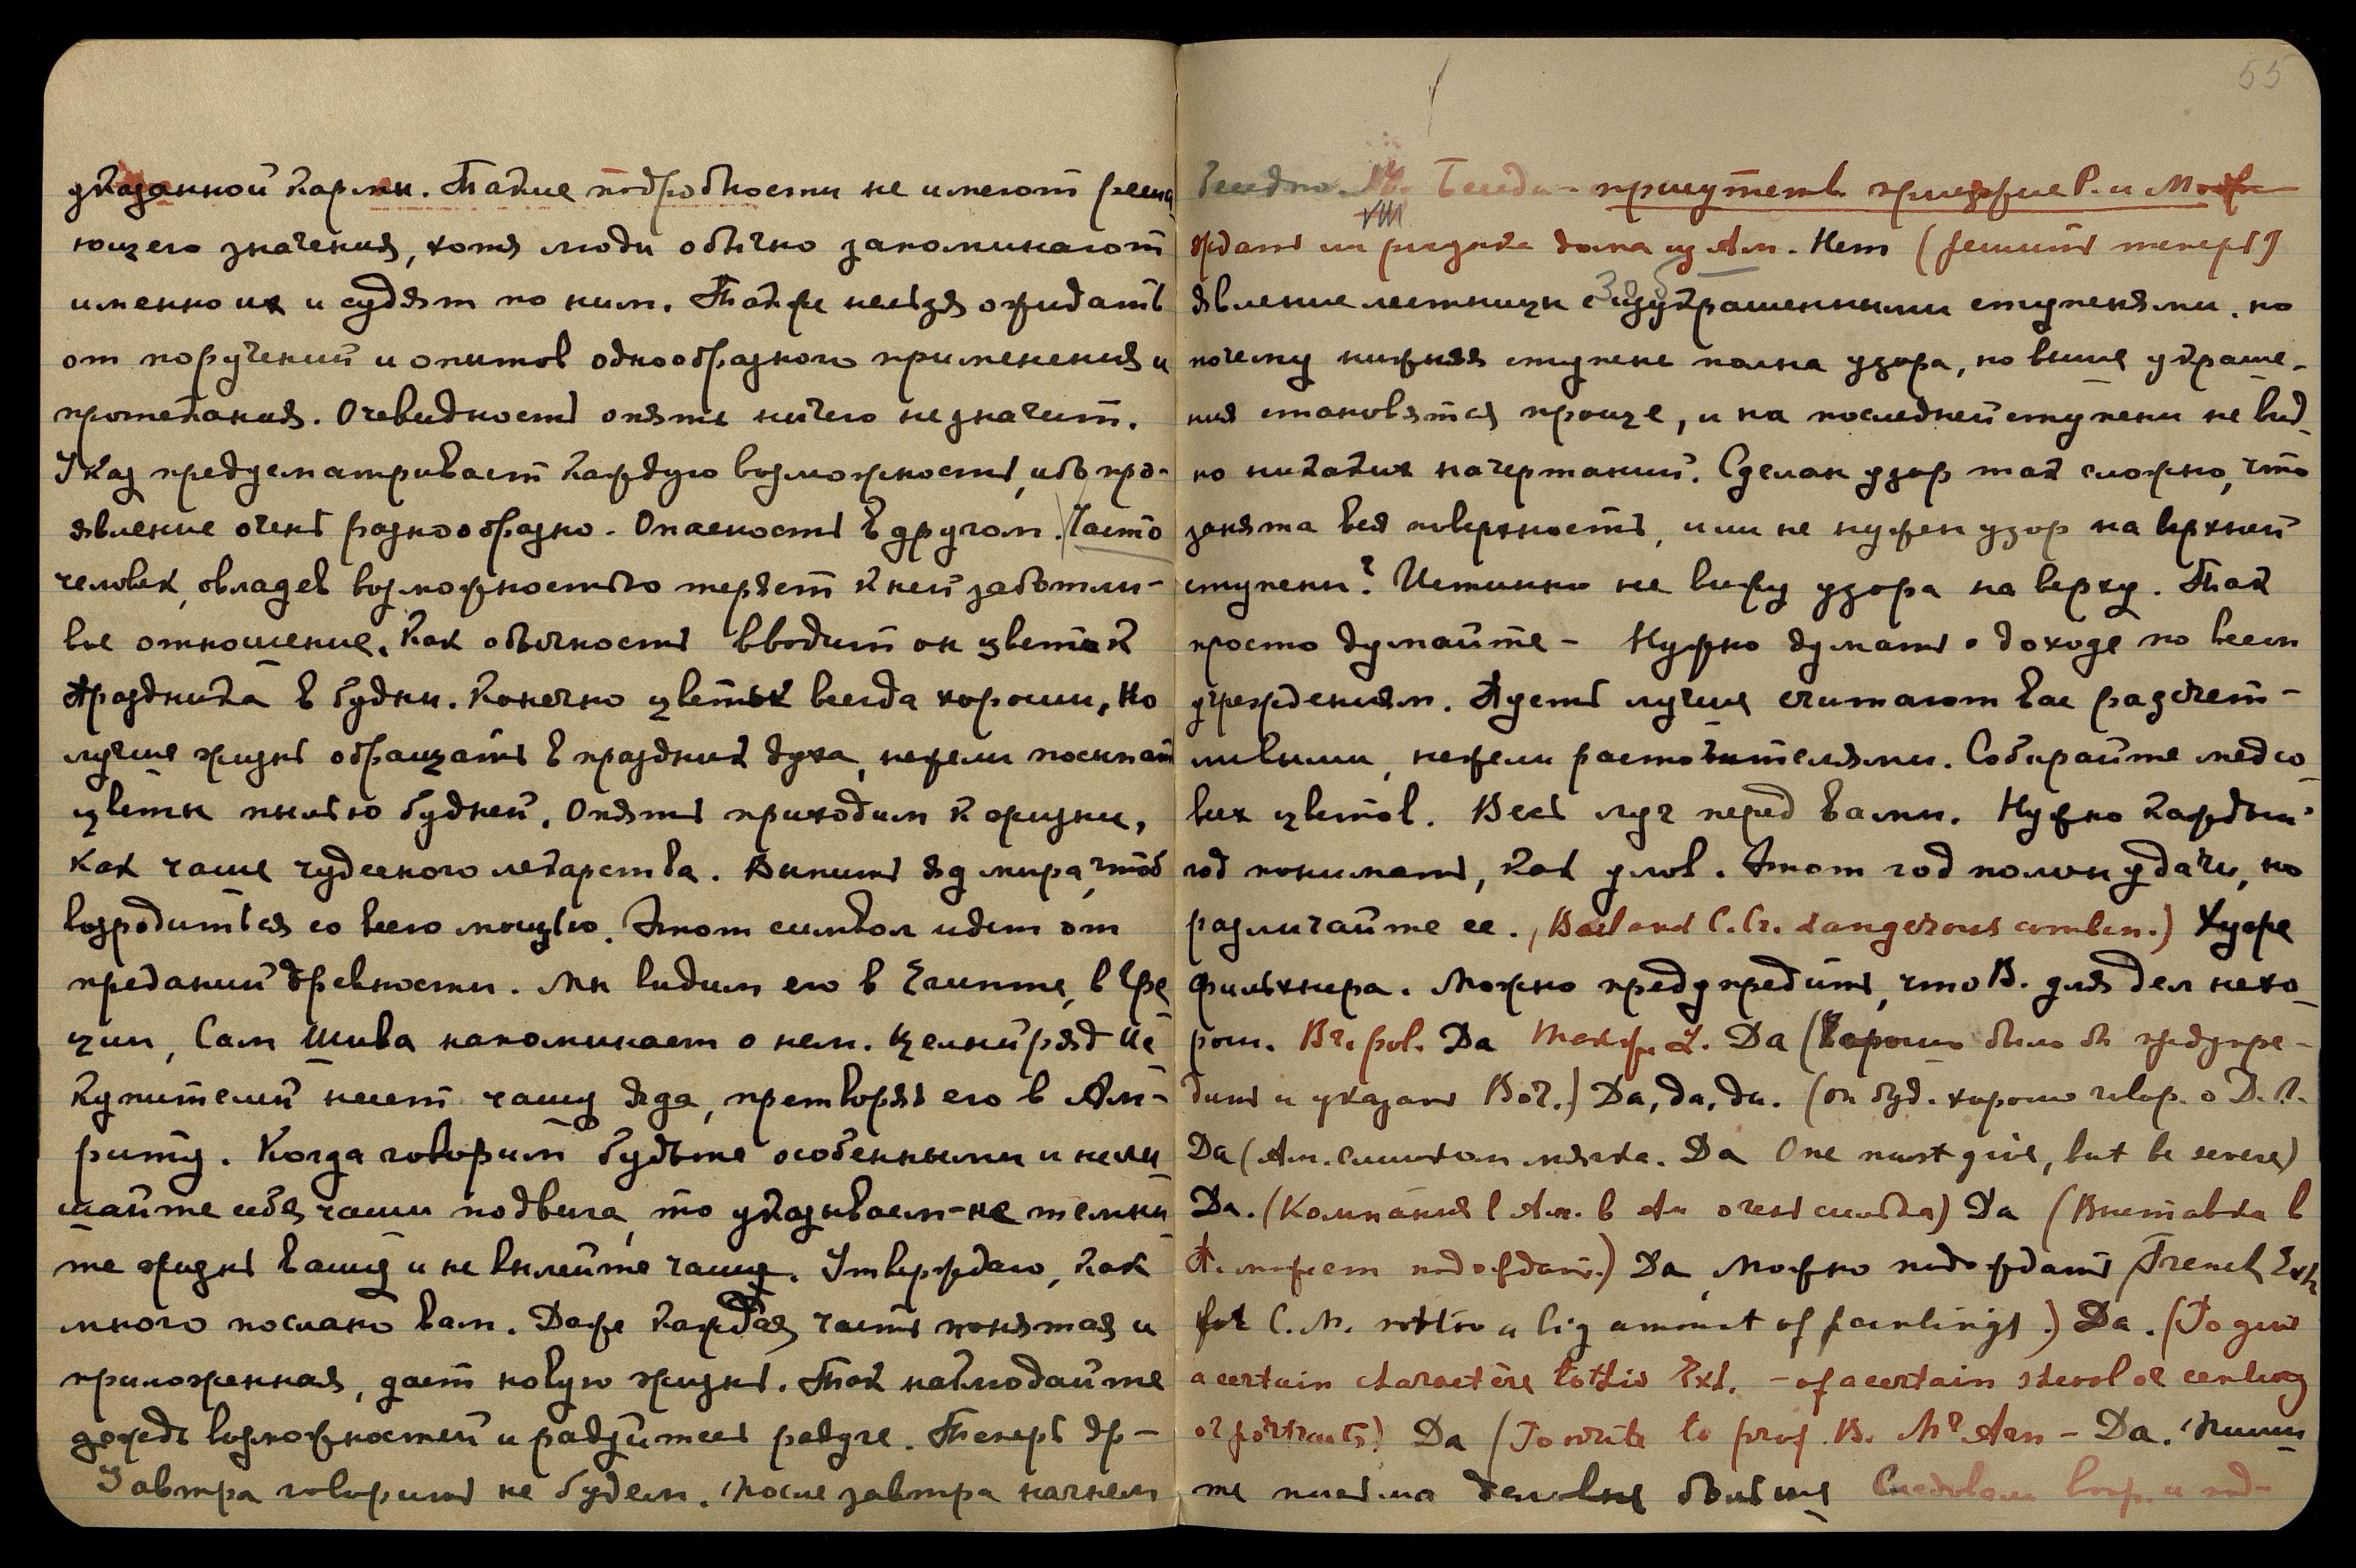 указанной кармы. Такие подробности не имеют решa
ющего значения, хотя люди обычно запоминают
именно их и судят по ним. Также нельзя ожидать
от поручений и опытов однообразного применения и
протекания. Очевидность опять ничего не значит.
Указ предусматривает каждую возможность, ибо про-
явление очень разнообразно. Опасность в другом. Часто
человек, овладев возможностью теряет к ней заботли-
вое отношение. Как обычность вводит он цветок
праздника в будни. Конечно цветок всегда хорош, но
лучше жизнь обращать в праздник духа, нежели посыпать
цветы пылью будней. Опять приходим к жизни,
как чаше чудесного лекарства. Выпить яд мира, чтоб
возродиться со всею мощью. Этот символ идет от
преданий древности. Мы видим его в Египте, в Гре
ции, Сам Шива напоминает о нем. Целый ряд Ис
купителей несет чашу яда, претворяя его в Ам-
риту. Когда говорим будьте особенными и не ли
шайте себя чаши подвига, то указываем - не темни
те жизнь вашу и не вылейте чашу. Утверждаю, как
много послано вам. Даже каждая часть понятая и
приложенная, дает новую жизнь. Так наблюдайте
дождь возможностей и радуйтесь радуге. Теперь др-
Завтра говорить не будем. После завтра начнем
55
беседу. Беседа - присутств. приезжие Р. и М.
VIII
ждать ли рисунка дома из Ам. Нет (решить теперь)
явление лестницы с изукрашенными ступенями. но
почему нижняя ступень полна узора, но выше украше-
ния становятся проще, и на последней ступени не вид_
но никаких начертаний. Сделан узор так сложно, что
занята вся поверхность, или не нужен узор на верхней
ступени? Истинно не вижу узора на верху. Так
просто думайте - Нужно думать о доходе по всем
учреждениям. Пусть лучше считают вас разсчет-
ливыми, нежели расточителями. Собирайте медо
вых цветов. Весь луг перед вами. Нужно каждый
год понимать, как улов. Этот год полон удачи, но
различайте ее. , and C. Cr. dangerous combin.) Хуже
Фильхнера. Можно предупредить, что В. для дел нехо_
рош. Да Да (Хорошо было бы предупре-
дить и указать Бог.) Да, да, да. (он буд. хорошо говор. о D. R.
Да (Ам. слишком мягка. Да One must give, but be severe)
Да. (Компания в Ам. очень слаба) Да (Выставка в
П. может подождать.) Да, можно подождать (French Exh
for C. M. a big amount of paintings.) Да. (To give
a certain charactere to this Exh. - of a certain school or century
or portraits) Да (To write to prof. B. Да. Пиши
те письма деловые больше